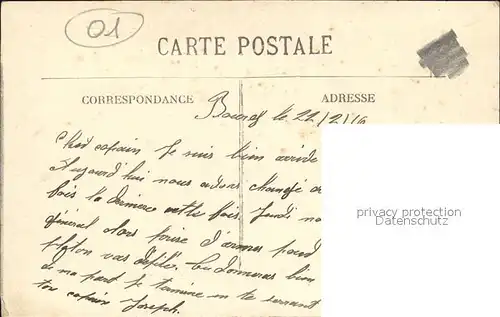 01
CARTE POSTALE
CORRESPONDANCE
ADRESSE
Bourg le 22/2/19
Cher copain Je suis bien arrivé
Aujourd'hui nous avons changé
fois la dernière cette fois. Jeudi
général alors prise d'armes pour
défilé. donneras bien
de ma part Je termine en te serrant
ton copain Joseph.
privacy protection
Datenschutz